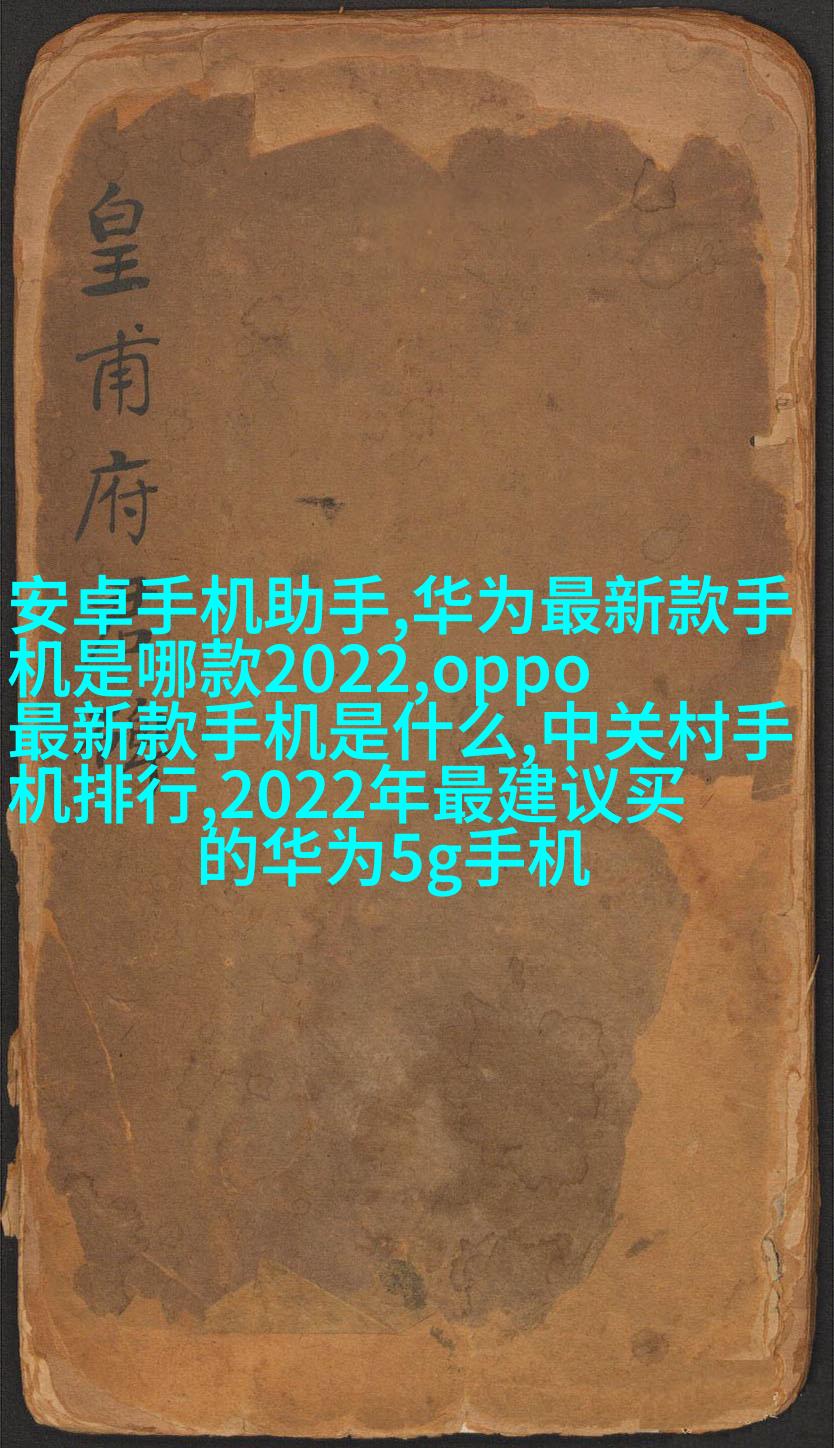 皇甫府君
安卓手机助手,华为最新款手
机是哪款2022,oppo
最新款手机是什么,中关村手
机排行,2022年最建议买
的华为5g手机